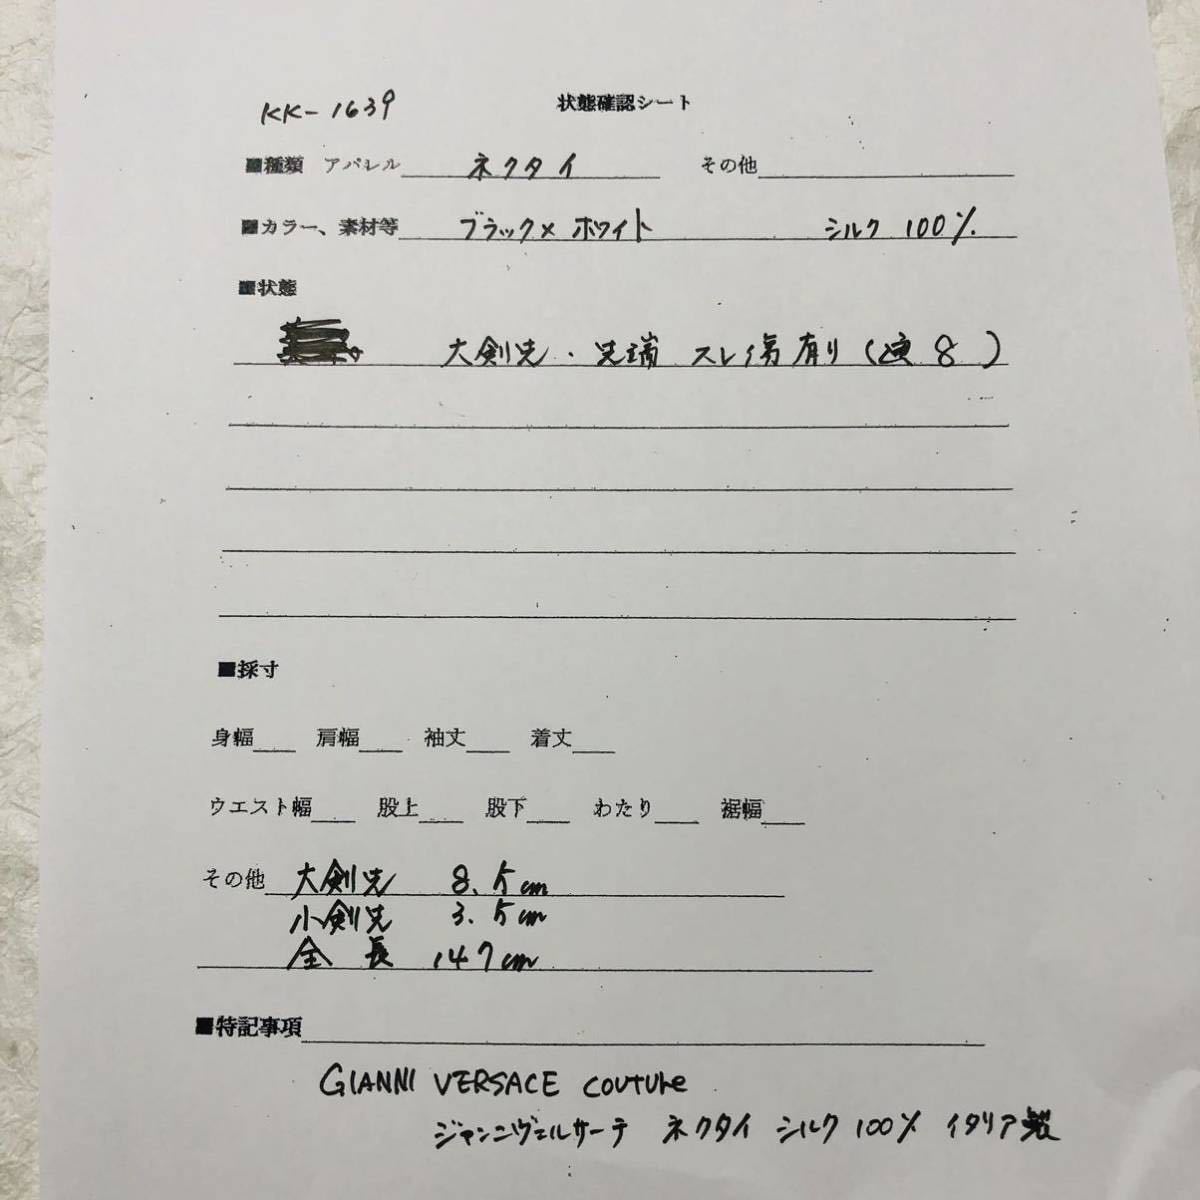 KK-1639 状態確認シート
■種類 アパレル ネクタイ その他
■カラー、素材等 ブラック×ホワイト シルク 100%
■状態
大剣先・先端 スレ傷有り( 8 )
■採寸
身幅 肩幅 袖丈 着丈
ウエスト幅 股上 股下 わたり 裾幅
その他 大剣先 8.5cm
小剣先 3.5cm
全長 147cm
■特記事項
GIANNI VERSACE COUTURE
ジャンニヴェルサーチ ネクタイ シルク 100% イタリア製